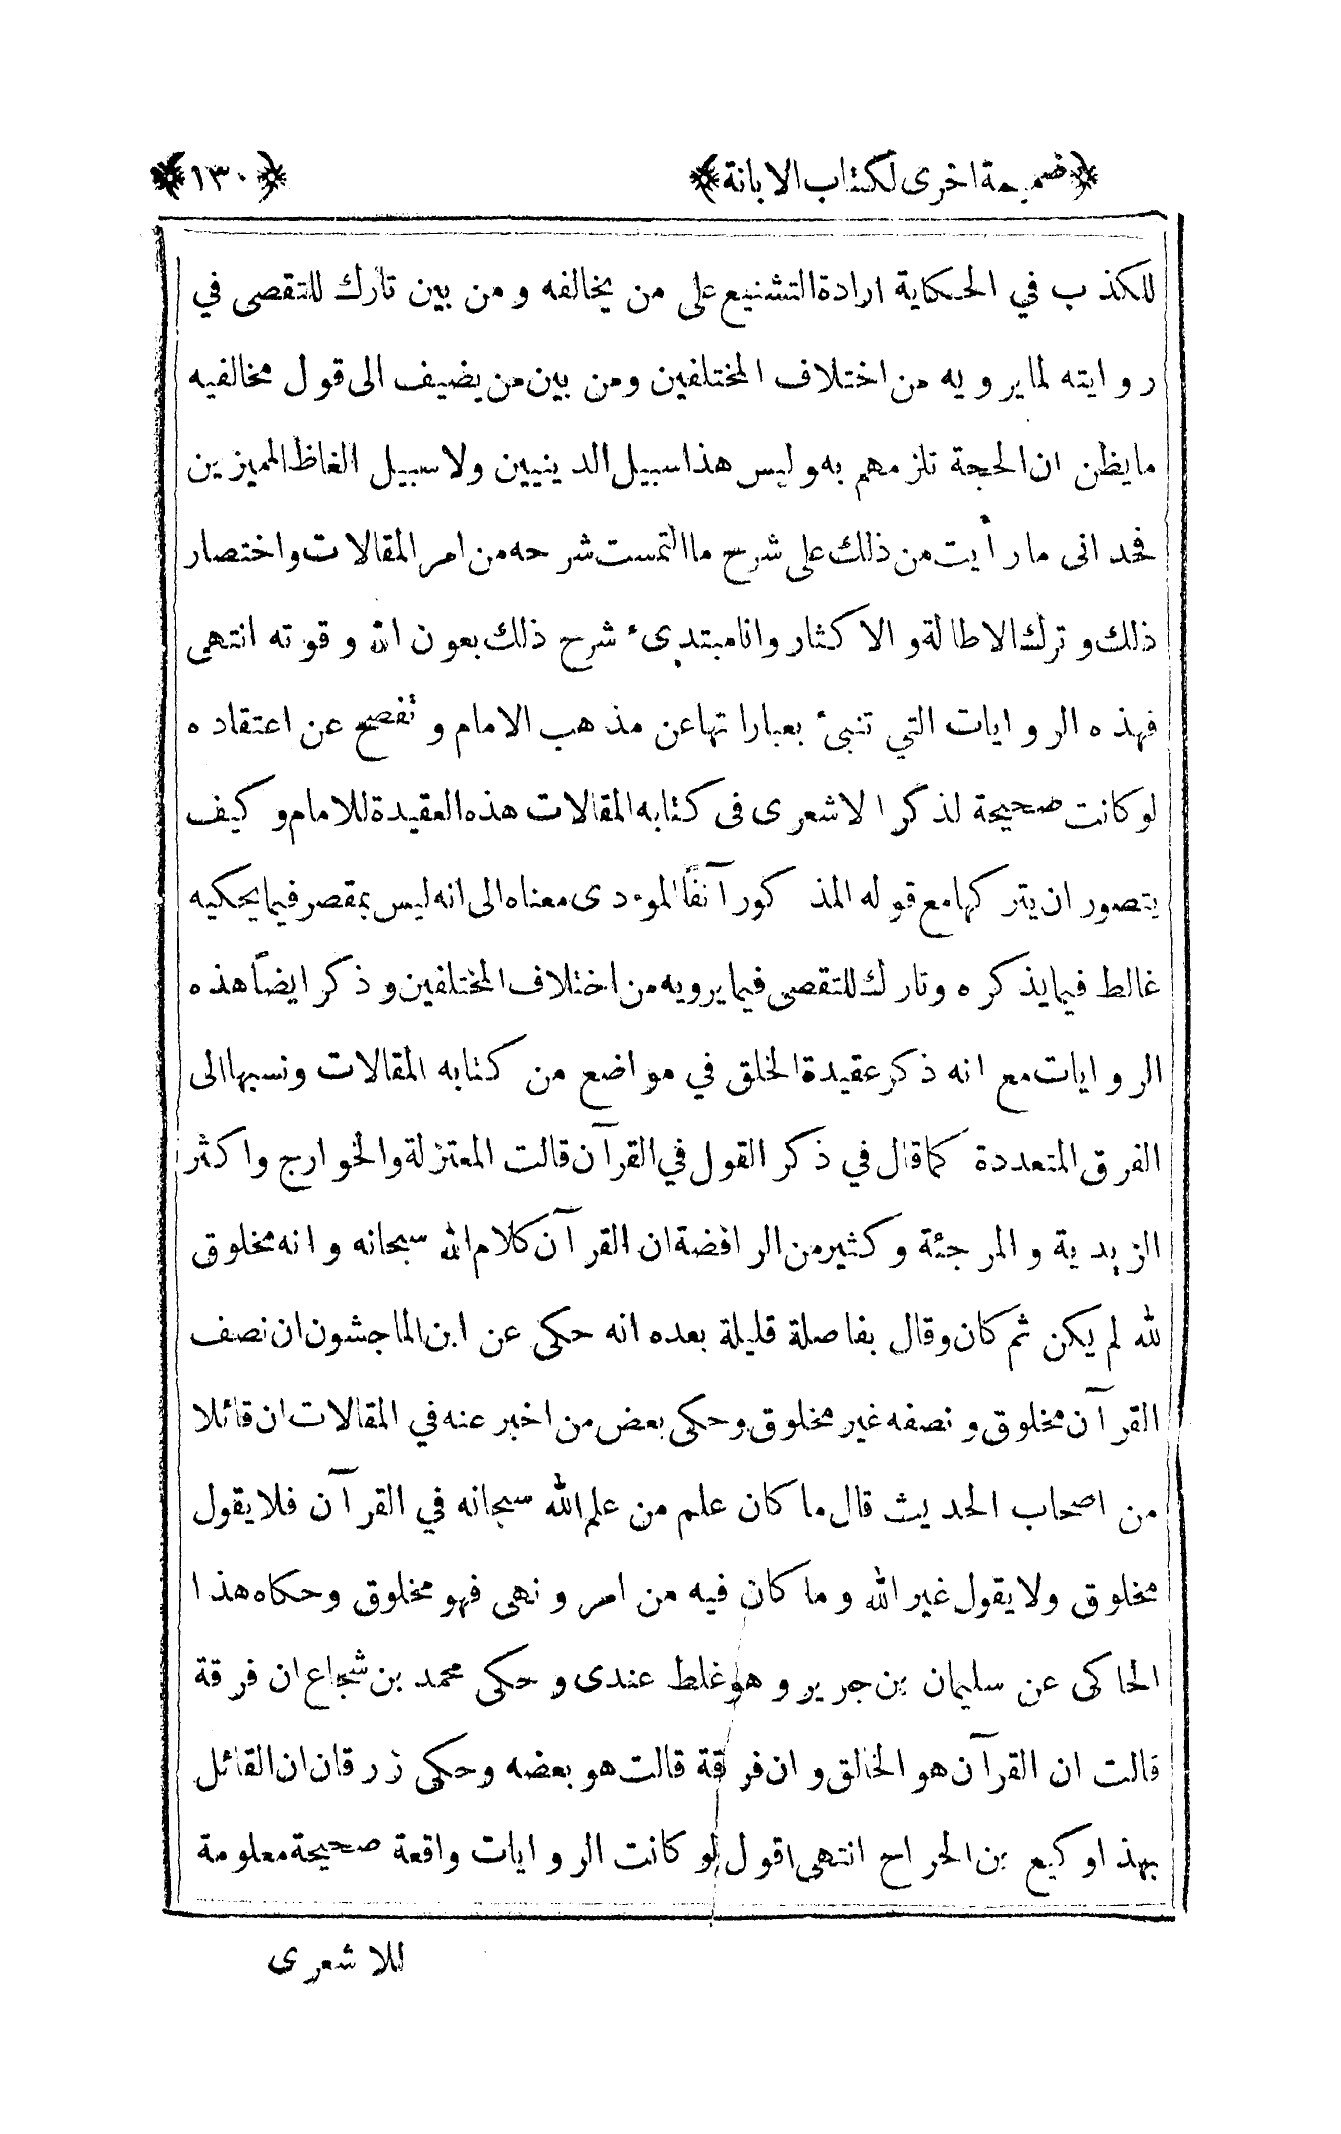 ﴿ضميمة اخرى لكتاب الابانة﴾ ﴿١٣٠﴾
للكذب في الحكاية ارادة التشنيع على من يخالفه و من بين تارك للتقصى في
روايته لما يرويه من اختلاف المختلفين ومن بين من يضيف الى قول مخالفيه
ما يظن ان الحجة تلزمهم به وليس هذا سبيل الدينيين ولا سبيل الغاظ المميزين
فحدانى ما رأيت من ذلك على شرح ما التمست شرحه من امر المقالات واختصار
ذلك و ترك الاطالة و الاكثار وانا مبتدىء شرح ذلك بعون الله و قوته انتهى
فهذه الروايات التي تنبىء بعباراتها عن مذهب الامام و تفصح عن اعتقاده
لو كانت صحيحة لذكر الاشعرى فى كتابه المقالات هذه العقيدة للامام و كيف
يتصور ان يتركها مع قوله المذكور آنفاً المؤدى معناه الى انه ليس بمقصر فيما يحكيه
غالط فيما يذكره و تارك للتقصى فيما يرويه من اختلاف المختلفين و ذكر ايضاً هذه
الروايات مع انه ذكر عقيدة الخلق في مواضع من كتابه المقالات ونسبها الى
الفرق المتعددة كما قال في ذكر القول في القرآن قالت المعتزلة والخوارج واكثر
الزيدية و المرجئة و كثير من الرافضة ان القرآن كلام الله سبحانه و انه مخلوق
لله لم يكن ثم كان وقال بفاصلة قليلة بعده انه حكى عن ابن الماجشون ان نصف
القرآن مخلوق و نصفه غير مخلوق وحكى بعض من اخبر عنه في المقالات ان قائلا
من اصحاب الحديث قال ما كان علم من علم الله سبحانه في القرآن فلا يقول
مخلوق ولا يقول غير الله و ما كان فيه من امر و نهى فهو مخلوق وحكاه هذا
الحاكى عن سليمان بن جرير و هو غلط عندى و حكى محمد بن شجاع ان فرقة
قالت ان القرآن هو الخالق و ان فرقة قالت هو بعضه وحكى زرقان ان القائل
بهذا وكيع بن الجراح انتهى اقول لو كانت الروايات واقعة صحيحة معلومة
للاشعرى